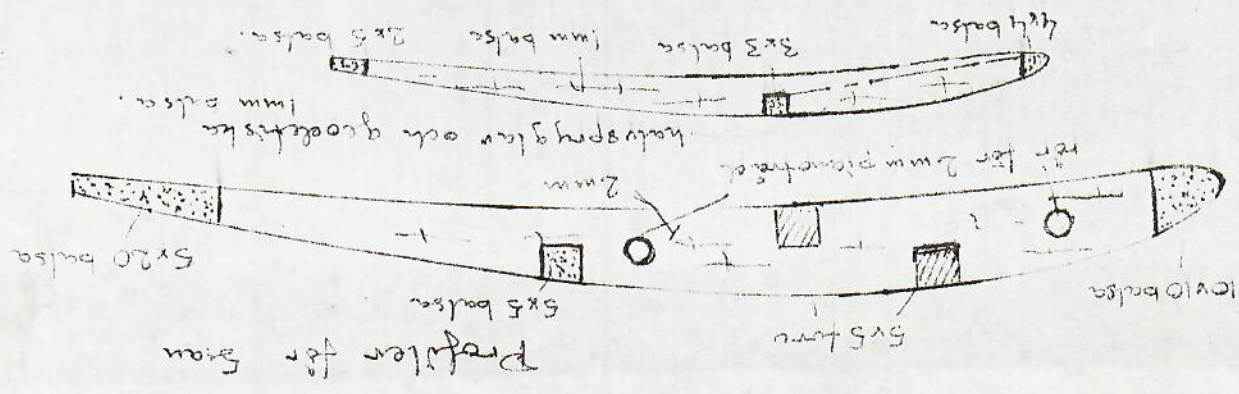 Profiler för 5:an
10x10 balsa
5x5 furu
5x5 balsa
5x20 balsa
rör för 2 mm pianotråd
2 mm
halvspryglar och geodetiska
1 mm balsa.
4x4 balsa
3x3 balsa
1 mm balsa
2x5 balsa.